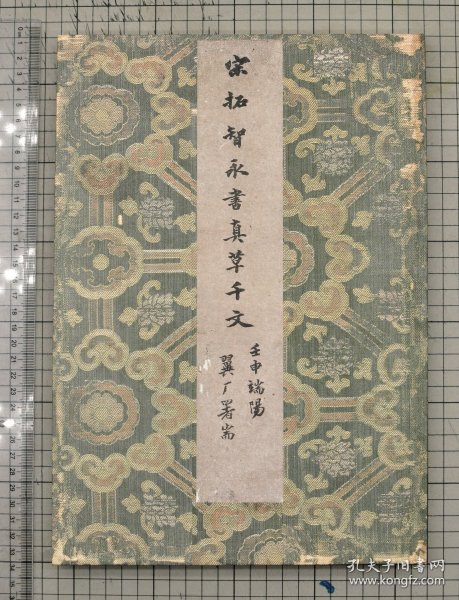 宗拓智永書真草千文
壬申端陽
翼厂署耑
孔夫子旧书网
www.kongfz.com